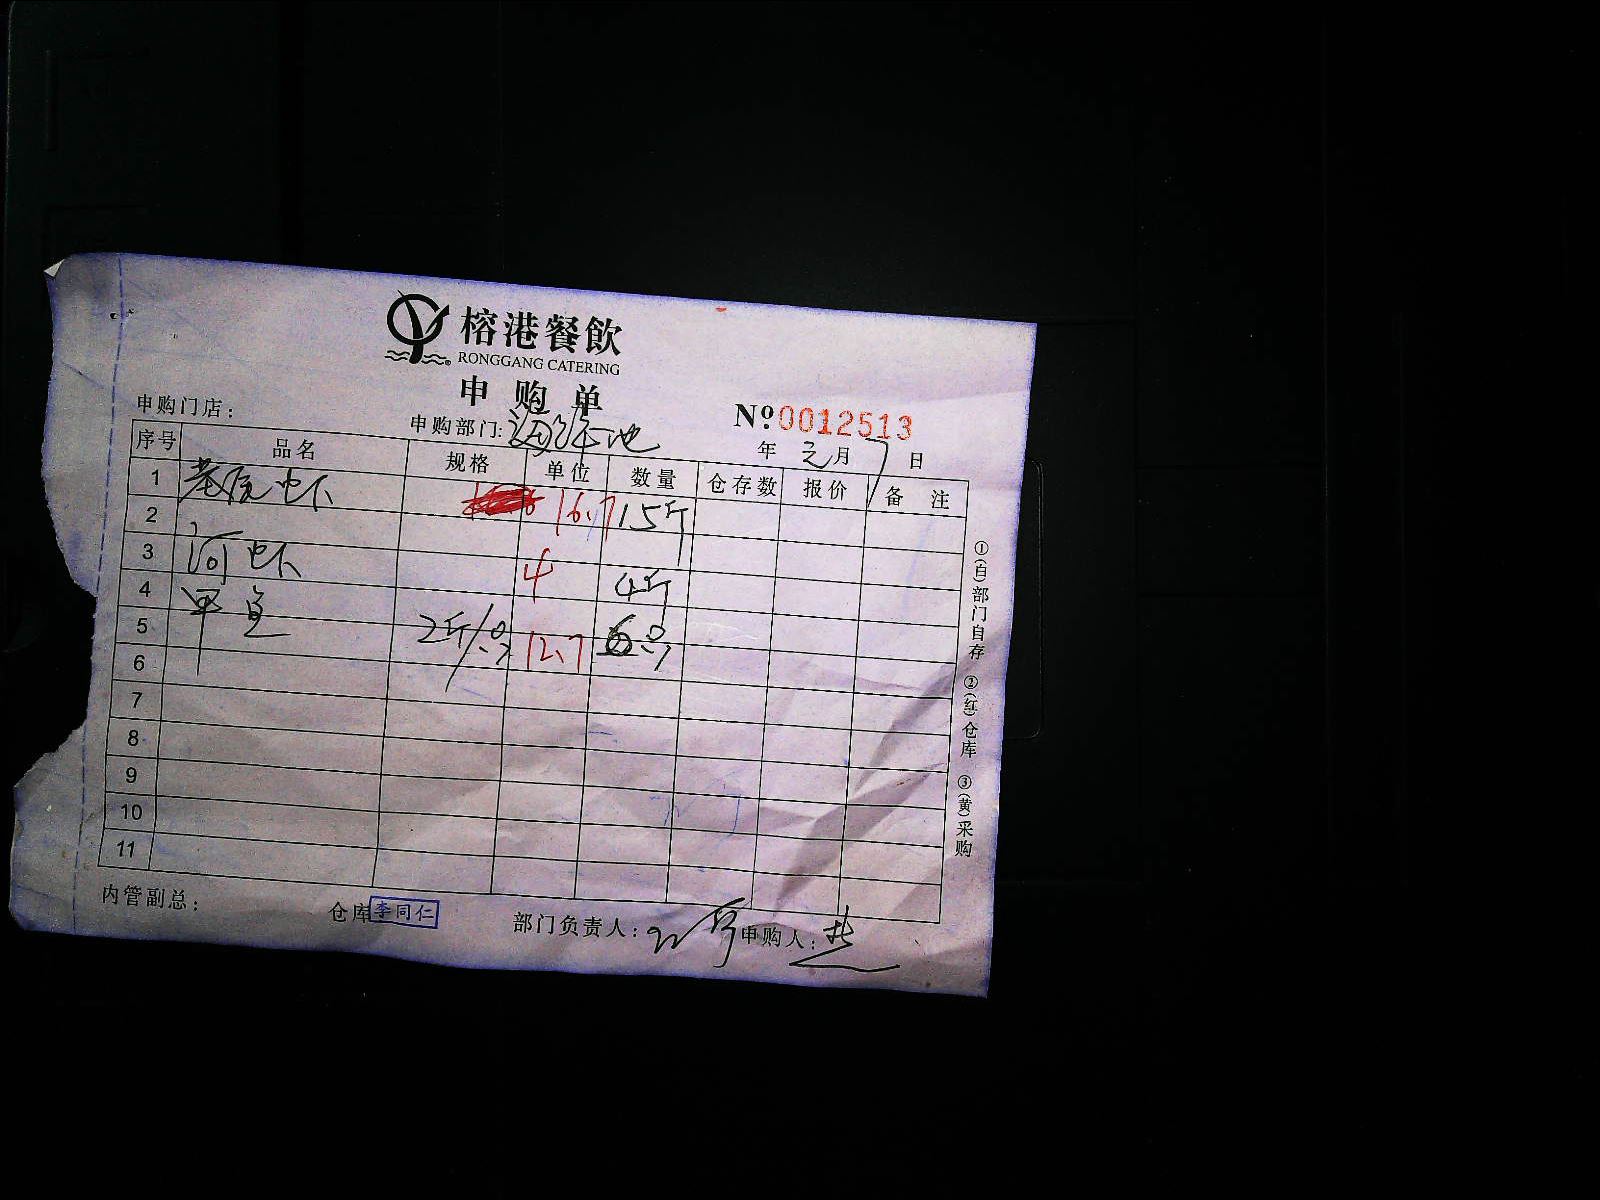 榕港餐飲
RONGGANG CATERING
申购单
申购门店：
申购部门：海鲜池
№0012513
年 元月 7日
序号 品名 规格 单位 数量 仓存数 报价 备注
1 基尾虾 16.7 15斤
2
3 河虾 4 4斤
4 甲鱼
5 2斤/只 12.7 6只
6
7
8
9
10
11
①(白)部门自存 ②(红)仓库 ③(黄)采购
内管副总：
仓库 李同仁
部门负责人：
申购人：